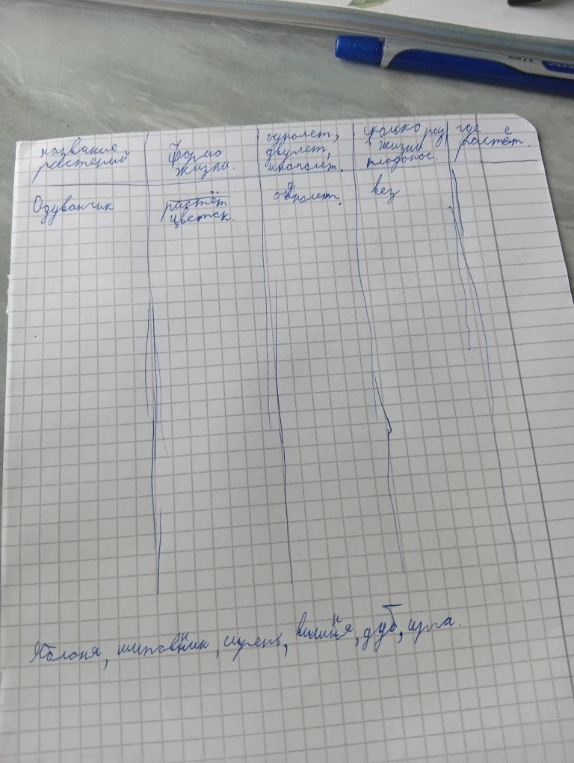 название
растений
Форма
жизни.
однолет,
двулет,
многолет.
сколько раз
жизни
плодонос.
где
растёт
Одуванчик
растёт
цветок.
однолет.
Яблоня, шиповник, сирень, вишня, дуб, ирга.